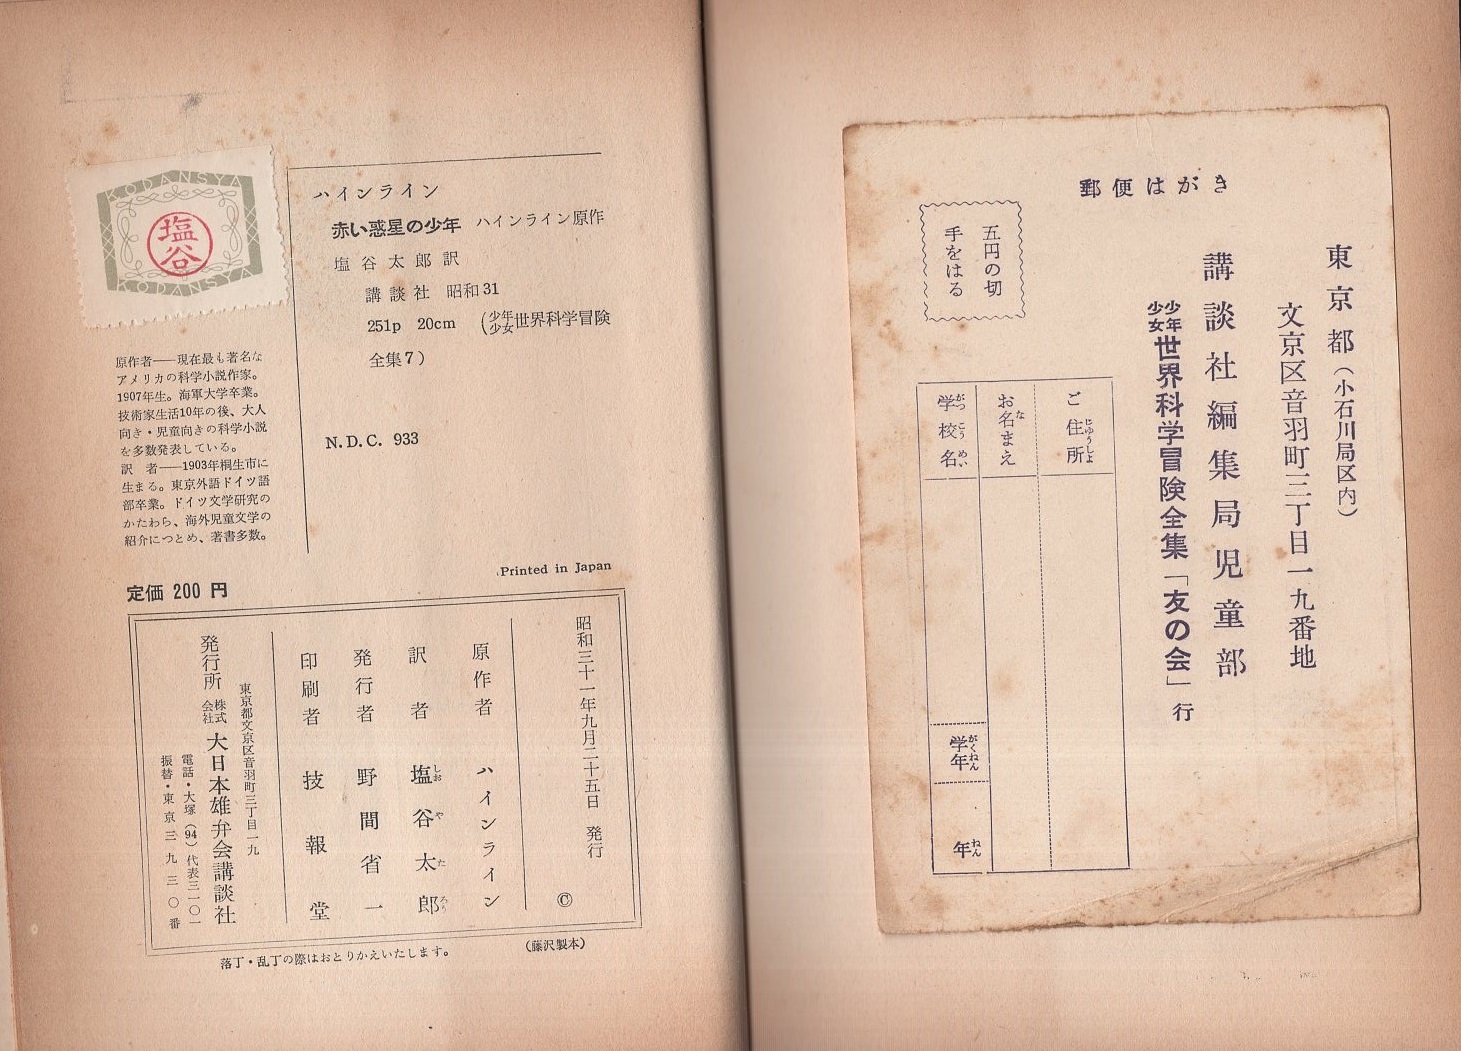 KODANSYA
塩谷
KODANSYA
ハインライン
赤い惑星の少年 ハインライン原作
塩谷太郎訳
講談社 昭和31
251p 20cm (少年少女世界科学冒険
全集7)
N.D.C. 933
原作者――現在最も著名な
アメリカの科学小説作家。
1907年生。海軍大学卒業。
技術家生活10年の後、大人
向き・児童向きの科学小説
を多数発表している。
訳 者――1903年桐生市に
生まる。東京外語ドイツ語
部卒業。ドイツ文学研究の
かたわら、海外児童文学の
紹介につとめ、著書多数。
Printed in Japan
定価 200 円
昭和三十一年九月二十五日 発行 ©
原作者 ハインライン
訳者 塩谷太郎
しおやたろう
発行者 野間省一
印刷者 技報堂
東京都文京区音羽町三丁目一九
発行所 株式会社 大日本雄弁会講談社
電話・大塚(94)代表三一〇一
振替・東京三九三〇番
落丁・乱丁の際はおとりかえいたします。
(藤沢製本)
郵便はがき
五円の切
手をはる
東京都(小石川局区内)
文京区音羽町三丁目一九番地
講談社編集局児童部
少年少女世界科学冒険全集「友の会」行
ご住所
じゅうしょ
お名まえ
な
学校名
がっこうめい
学年
がくねん
年
ねん